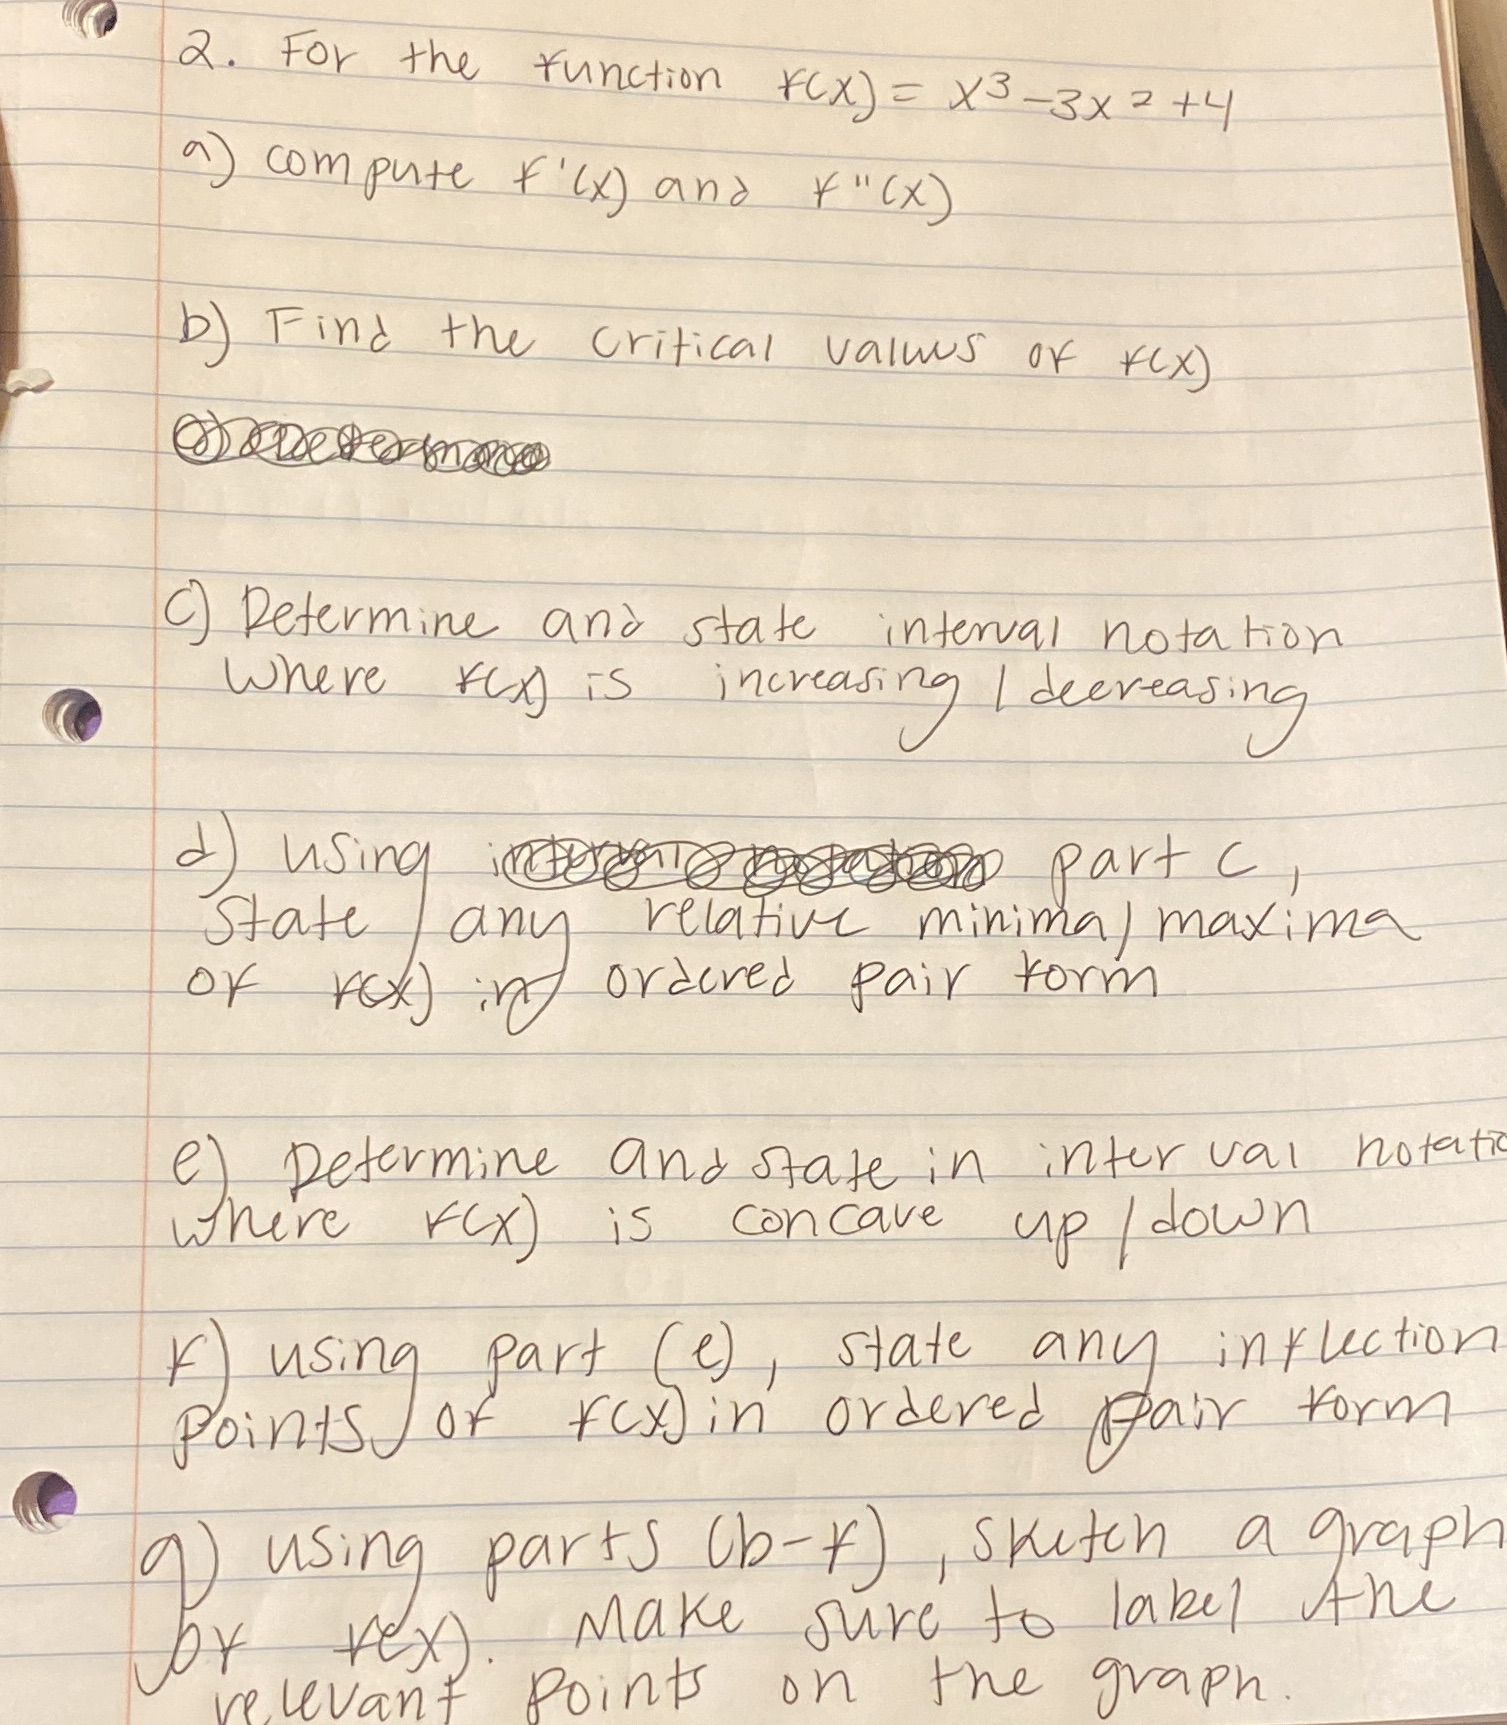 2. For the function f(x) = x³ - 3x² + 4
a) compute f'(x) and f"(x)
b) Find the critical values of f(x)
c) Determine and state interval notation
where f(x) is increasing / decreasing
d) using part c,
state any relative minima / maxima
of f(x) in ordered pair form
e) Determine and state in interval notatio
where f(x) is concave up / down
f) using part (e), state any inflection
points of f(x) in ordered pair form
g) using parts (b-f), sketch a graph
of f(x). Make sure to label the
relevant points on the graph.